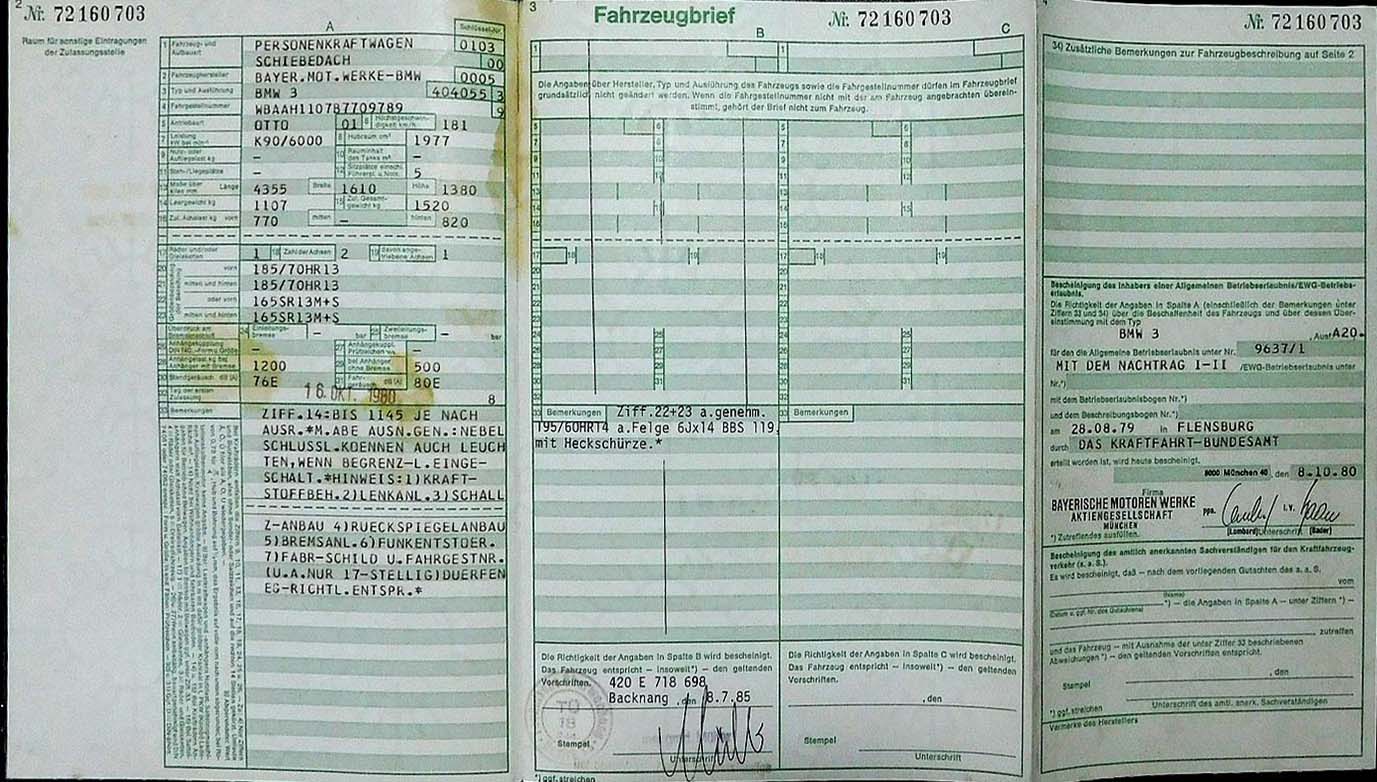 2
Nr. 72160703
Raum für sonstige Eintragungen
der Zulassungsstelle
A
Schlüssel-Nr.
1 Fahrzeug- und Aufbauart PERSONENKRAFTWAGEN 0103
SCHIEBEDACH 00
2 Fahrzeughersteller BAYER.MOT.WERKE-BMW 0005
3 Typ und Ausführung BMW 3 404055 3
4 Fahrgestellnummer WBAAH110787709789 9
5 Antriebsart OTTO 01 6 Höchstgeschwindigkeit km/h 181
7 Leistung kW bei min K90/6000 8 Hubraum cm³ 1977
9 Nutz- oder Aufliegelast kg – 10 Rauminhalt des Tanks m³ –
11 Steh-/Liegeplätze – 12 Sitzplätze einschl. Führerpl. u. Nots. 5
13 Maße über alles mm Länge 4355 Breite 1610 Höhe 1380
14 Leergewicht kg 1107 15 Zul. Gesamtgewicht kg 1520
16 Zul. Achslast kg vorn 770 mitten – hinten 820
17 Räder und/oder Gleisketten 1 18 Zahl der Achsen 2 19 davon angetriebene Achsen 1
20 vorn 185/70HR13
21 mitten und hinten 185/70HR13
22 oder vorn 165SR13M+S
23 mitten und hinten 165SR13M+S
Überdruck am Bremsanschluß 24 Einleitungsbremse – bar 25 Zweileitungsbremse – bar
26 Anhängekupplung DIN 740.., Form u. Größe – 27 Anhängekuppl. Prüfzeichen –
28 Anhängelast kg bei Anhänger mit Bremse 1200 29 bei Anhänger ohne Bremse 500
30 Standgeräusch dB (A) 76E 31 Fahrgeräusch dB (A) 80E
32 Tag der ersten Zulassung 16. OKT. 1980 8
33 Bemerkungen ZIFF.14:BIS 1145 JE NACH
AUSR.*M.ABE AUSN.GEN.:NEBEL
SCHLUSSL.KOENNEN AUCH LEUCH
TEN,WENN BEGRENZ-L.EINGE-
SCHALT.*HINWEIS:1)KRAFT-
STOFFBEH.2)LENKANL.3)SCHALL
Z-ANBAU 4)RUECKSPIEGELANBAU
5)BREMSANL.6)FUNKENTSTOER.
7)FABR-SCHILD U.FAHRGESTNR.
(U.A.NUR 17-STELLIG)DUERFEN
EG-RICHTL.ENTSPR.*
3
Fahrzeugbrief
Nr. 72160703
B
C
1 1
Die Angaben über Hersteller, Typ und Ausführung des Fahrzeugs sowie die Fahrgestellnummer dürfen im Fahrzeugbrief
grundsätzlich nicht geändert werden. Wenn die Fahrgestellnummer nicht mit der am Fahrzeug angebrachten überein-
stimmt, gehört der Brief nicht zum Fahrzeug.
5 6 5 6
7 8 7 8
9 10 9 10
11 12 11 12
13 13
14 15 14 15
16 16
17 18 19 17 18 19
20 20
21 21
22 22
23 23
24 25 24 25
26 27 26 27
28 29 28 29
30 31 30 31
33 Bemerkungen Ziff.22+23 a.genehm.
195/60HR14 a.Felge 6Jx14 BBS 119,
mit Heckschürze.*
33 Bemerkungen
Die Richtigkeit der Angaben in Spalte B wird bescheinigt.
Das Fahrzeug entspricht – insoweit*) – den geltenden
Vorschriften. 420 E 718 698
Backnang , den 8.7.85
Stempel
Unterschrift
*) ggf. streichen
Die Richtigkeit der Angaben in Spalte C wird bescheinigt.
Das Fahrzeug entspricht – insoweit*) – den geltenden
Vorschriften.
, den
Stempel
Unterschrift
4
Nr. 72160703
34) Zusätzliche Bemerkungen zur Fahrzeugbeschreibung auf Seite 2
Bescheinigung des Inhabers einer Allgemeinen Betriebserlaubnis/EWG-Betriebs-
erlaubnis.
Die Richtigkeit der Angaben in Spalte A (einschließlich der Bemerkungen unter
Ziffern 33 und 34) über die Beschaffenheit des Fahrzeugs und über dessen Über-
einstimmung mit dem Typ
BMW 3 , Ausf. A20.
für den die Allgemeine Betriebserlaubnis unter Nr. 9637/1
MIT DEM NACHTRAG I-II /EWG-Betriebserlaubnis unter
Nr.*)
mit dem Betriebserlaubnisbogen Nr.*)
und dem Beschreibungsbogen Nr.*)
am 28.08.79 in FLENSBURG
durch DAS KRAFTFAHRT-BUNDESAMT
erteilt worden ist, wird heute bescheinigt.
8000 München 40, den 8.10.80
Firma
BAYERISCHE MOTOREN WERKE
AKTIENGESELLSCHAFT
MÜNCHEN
ppa. i.V.
(Lombard) Unterschrift (Bader)
*) Zutreffendes ausfüllen.
Bescheinigung des amtlich anerkannten Sachverständigen für den Kraftfahrzeug-
verkehr (a. a. S.).
Es wird bescheinigt, daß – nach dem vorliegenden Gutachten des a. a. S.
vom
(Name)
*) – die Angaben in Spalte A – unter Ziffern *) –
(Datum u. ggf. Nr. des Gutachtens)
zutreffen
und das Fahrzeug – mit Ausnahme der unter Ziffer 33 beschriebenen
Abweichungen *) – den geltenden Vorschriften entspricht.
, den
Stempel
Unterschrift des amtl. anerk. Sachverständigen
*) ggf. streichen
Vermerke des Herstellers